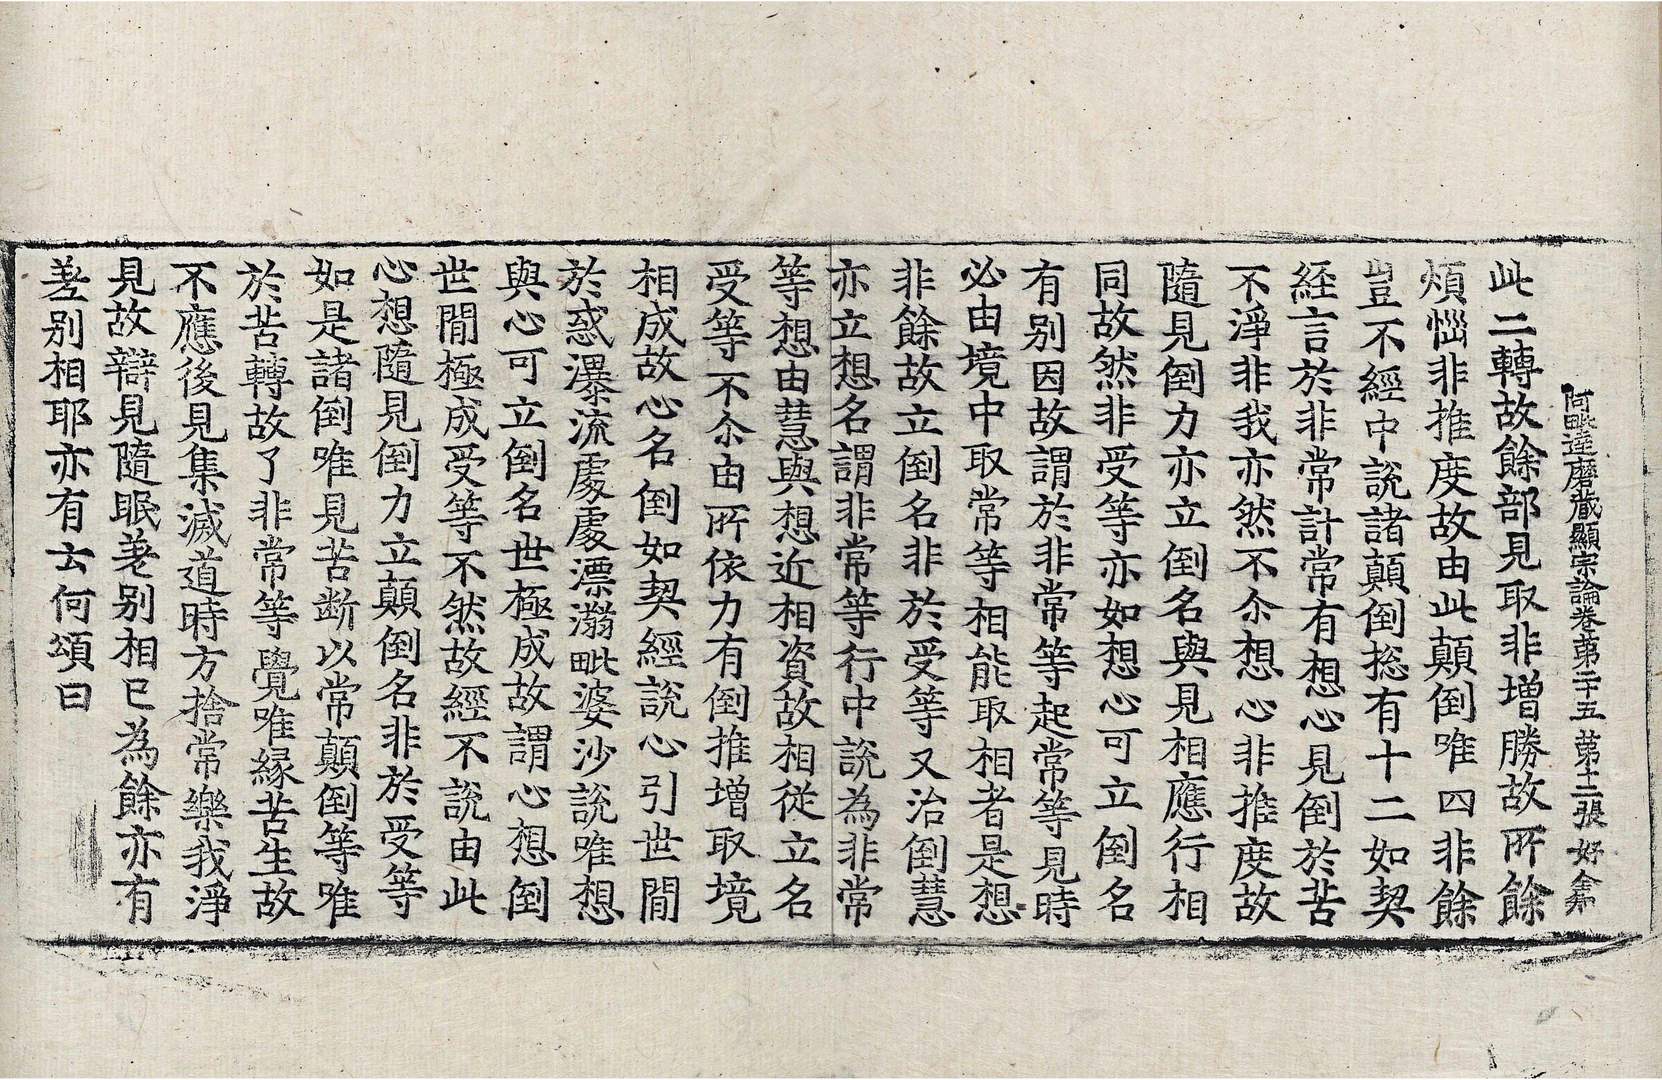 阿毗達磨藏顯宗論卷第二十五 第十二張 好
此二轉故餘部見取非增勝故所餘
煩惱非推度故由此顛倒唯四非餘
豈不經中說諸顛倒捴有十二如契
経言於非常計常有想心見倒於苦
不淨非我亦然不尒想心非推度故
隨見倒力亦立倒名與見相應行相
同故然非受等亦如想心可立倒名
有別因故謂於非常等起常等見時
必由境中取常等相能取相者是想
非餘故立倒名非於受等又治倒慧
亦立想名謂非常等行中說為非常
等想由慧與想近相資故相從立名
受等不尒由所依力有倒推增取境
相成故心名倒如契經說心引世間
於惑瀑流處處漂溺毗婆沙說唯想
與心可立倒名世極成故謂心想倒
世間極成受等不然故經不說由此
心想隨見倒力立顛倒名非於受等
如是諸倒唯見苦断以常顛倒等唯
於苦轉故了非常等覺唯緣苦生故
不應後見集滅道時方捨常樂我淨
見故辯見隨眠差別相已為餘亦有
差別相耶亦有云何頌曰